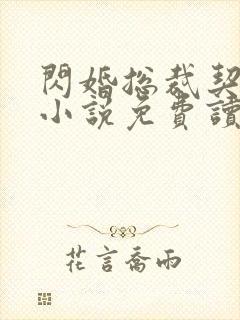 閃婚總裁契
小說免費讀
花言喬雨